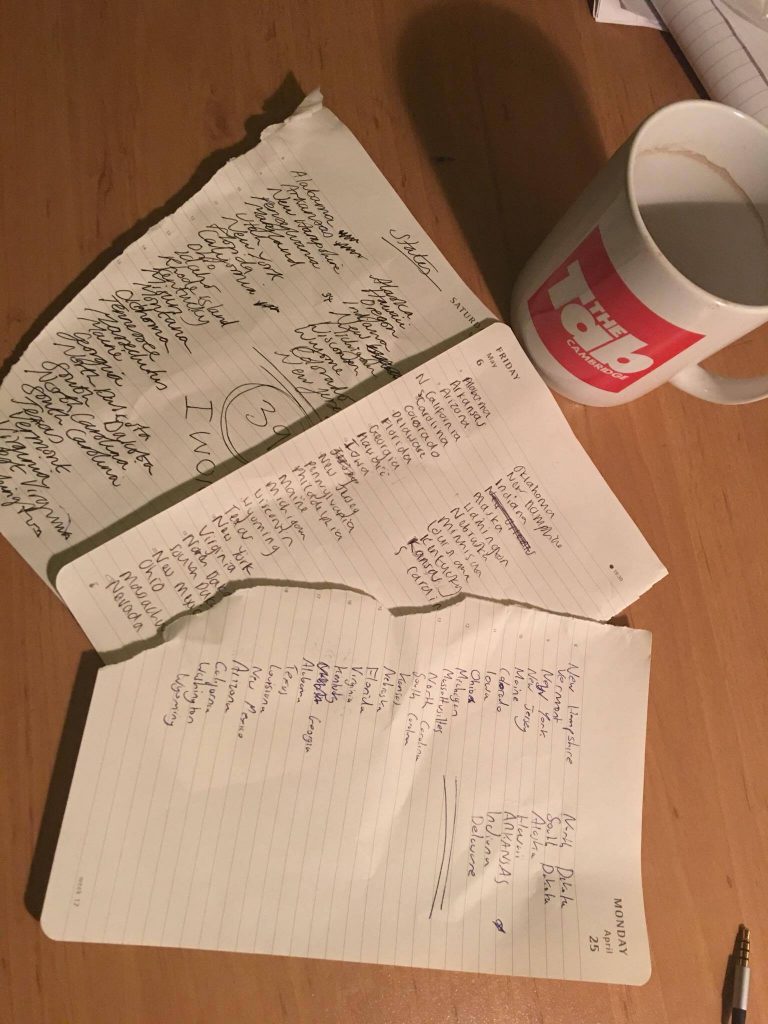 States
SATURD
Alabama
Arkansas
New Hampshire
Pennsylvania
Maryland
Utah
New York
Florida
California
Idaho
Ohio
Rhode Island
Kentucky
Montana
Tennessee
Maine
Georgia
North Dakota
South Dakota
North Carolina
South Carolina
Texas
Vermont
Virginia
Alaska
Hawaii
Oregon
Indiana
Michigan
Wisconsin
Colorado
New Jers
39
I WO
THE
Tab
CAMBRIDGE
FRIDAY
May
6
Alabama
Arkansas
Arizona
California
N Carolina
Colorado
Delaware
Florida
Georgia
Hawaii
Iowa
New Jersey
Pennsylvania
Philadelphia
Maine
Michigan
Wisconsin
Wyoming
Texas
New York
Virginia
North Dako
South Dak
New Mexi
Ohio
Massachu
Nevada
6
Oklahoma
New Hampshire
Indiana
Alaska
Washington
Nebraska
Kentucky
Kansas
S Carolin
MONDAY
April
25
New Hampshire
Vermont
New York
New Jersey
Maine
Colorado
Iowa
Ohio
Michigan
North Carolina
South Carolina
Kansas
Nebraska
Florida
Virginia
Georgia
Alabama
Texas
New Mexico
Arizona
California
Washington
Wyoming
North Dakota
South Dakota
Hawaii
ARKANSAS
Indiana
Delaware
Week 17